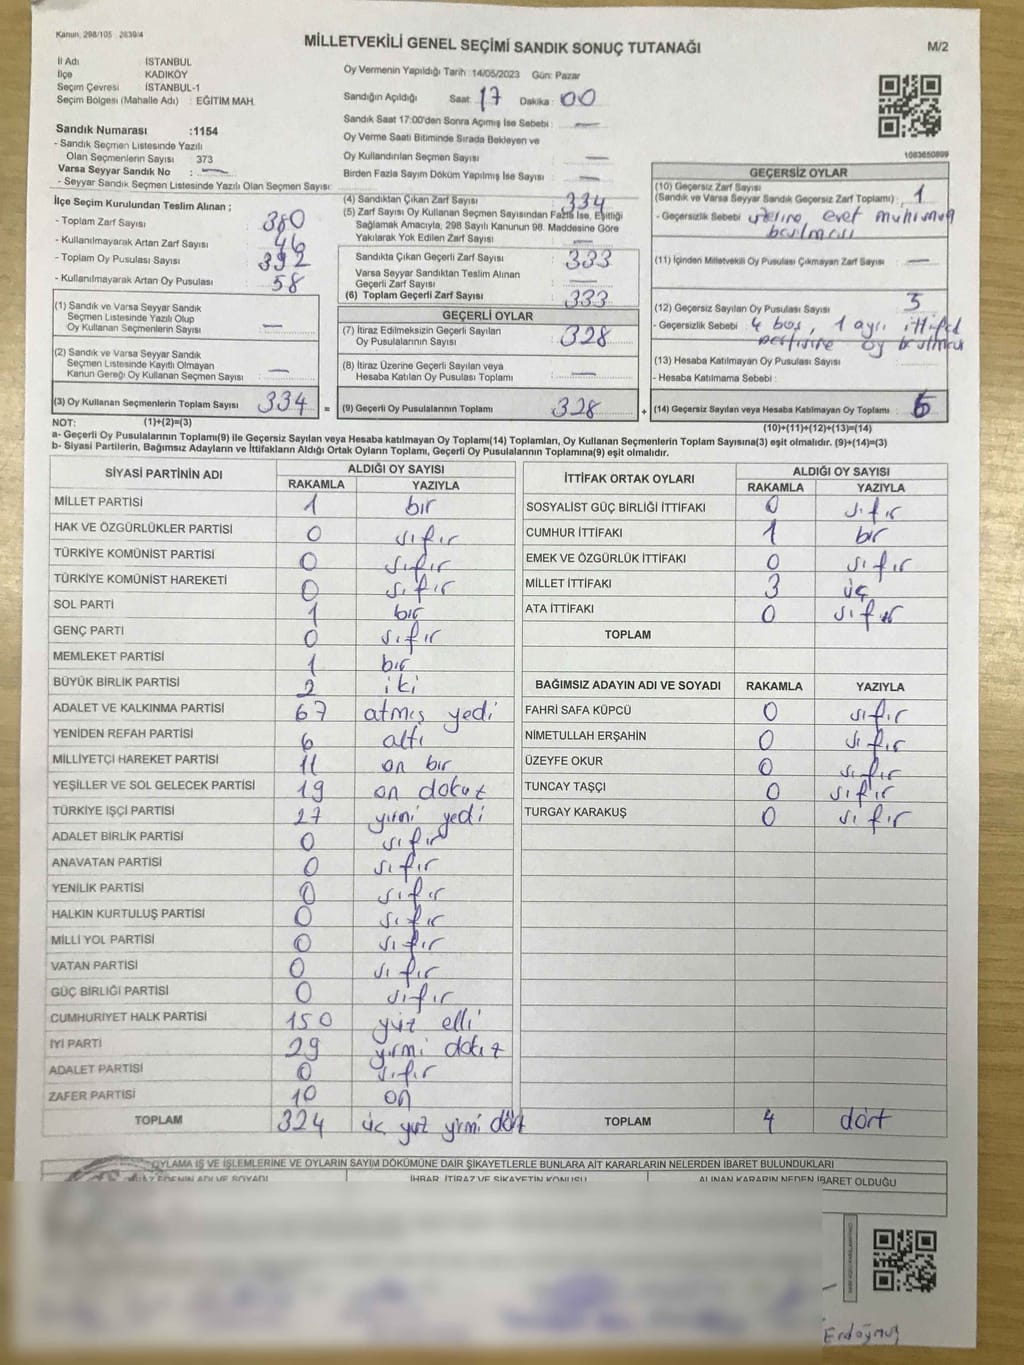 Kanun, 298/105 2839/4
MİLLETVEKİLİ GENEL SEÇİMİ SANDIK SONUÇ TUTANAĞI
M/2
İl Adı İSTANBUL
İlçe KADIKÖY
Seçim Çevresi İSTANBUL-1
Seçim Bölgesi (Mahalle Adı) : EĞİTİM MAH.
Sandık Numarası :1154
- Sandık Seçmen Listesinde Yazılı
Olan Seçmenlerin Sayısı 373
Varsa Seyyar Sandık No : —
- Seyyar Sandık Seçmen Listesinde Yazılı Olan Seçmen Sayısı:
Oy Vermenin Yapıldığı Tarih :14/05/2023 Gün: Pazar
Sandığın Açıldığı Saat: 17 Dakika: 00
Sandık Saat 17:00'den Sonra Açımış İse Sebebi : —
Oy Verme Saati Bitiminde Sırada Bekleyen ve
Oy Kullandırılan Seçmen Sayısı —
Birden Fazla Sayım Döküm Yapılmış İse Sayısı : —
1083650899
İlçe Seçim Kurulundan Teslim Alınan ;
- Toplam Zarf Sayısı : 380
- Kullanılmayarak Artan Zarf Sayısı : 46
- Toplam Oy Pusulası Sayısı : 392
- Kullanılmayarak Artan Oy Pusulası : 58
(1) Sandık ve Varsa Seyyar Sandık
Seçmen Listesinde Yazılı Olup
Oy Kullanan Seçmenlerin Sayısı —
(2) Sandık ve Varsa Seyyar Sandık
Seçmen Listesinde Kayıtlı Olmayan
Kanun Gereği Oy Kullanan Seçmen Sayısı : —
(3) Oy Kullanan Seçmenlerin Toplam Sayısı 334 =
(4) Sandıktan Çıkan Zarf Sayısı : 334
(5) Zarf Sayısı Oy Kullanan Seçmen Sayısından Fazla İse, Eşitliği
Sağlamak Amacıyla, 298 Sayılı Kanunun 98. Maddesine Göre
Yakılarak Yok Edilen Zarf Sayısı : —
Sandıkta Çıkan Geçerli Zarf Sayısı : 333
Varsa Seyyar Sandıktan Teslim Alınan
Geçerli Zarf Sayısı : —
(6) Toplam Geçerli Zarf Sayısı : 333
GEÇERLİ OYLAR
(7) İtiraz Edilmeksizin Geçerli Sayılan
Oy Pusulalarının Sayısı : 328
(8) İtiraz Üzerine Geçerli Sayılan veya
Hesaba Katılan Oy Pusulası Toplamı : —
(9) Geçerli Oy Pusulalarının Toplamı 328 +
GEÇERSİZ OYLAR
(10) Geçersiz Zarf Sayısı
(Sandık ve Varsa Seyyar Sandık Geçersiz Zarf Toplamı) : 1
- Geçersizlik Sebebi üzerine evet mührünün
basılması
(11) İçinden Milletvekili Oy Pusulası Çıkmayan Zarf Sayısı : —
(12) Geçersiz Sayılan Oy Pusulası Sayısı : 5
- Geçersizlik Sebebi 4 boş, 1 ayrı ittifak
partisine oy
(13) Hesaba Katılmayan Oy Pusulası Sayısı :
- Hesaba Katılmama Sebebi :
(14) Geçersiz Sayılan veya Hesaba Katılmayan Oy Toplamı : 6
NOT: (1)+(2)=(3)
(10)+(11)+(12)+(13)=(14)
a- Geçerli Oy Pusulalarının Toplamı(9) ile Geçersiz Sayılan veya Hesaba katılmayan Oy Toplamı(14) Toplamları, Oy Kullanan Seçmenlerin Toplam Sayısına(3) eşit olmalıdır. (9)+(14)=(3)
b- Siyasi Partilerin, Bağımsız Adayların ve İttifakların Aldığı Ortak Oyların Toplamı, Geçerli Oy Pusulalarının Toplamına(9) eşit olmalıdır.
SİYASİ PARTİNİN ADI ALDIĞI OY SAYISI
RAKAMLA YAZIYLA
MİLLET PARTİSİ 1 bir
HAK VE ÖZGÜRLÜKLER PARTİSİ 0 sıfır
TÜRKİYE KOMÜNİST PARTİSİ 0 sıfır
TÜRKİYE KOMÜNİST HAREKETİ 0 sıfır
SOL PARTİ 1 bir
GENÇ PARTİ 0 sıfır
MEMLEKET PARTİSİ 1 bir
BÜYÜK BİRLİK PARTİSİ 2 iki
ADALET VE KALKINMA PARTİSİ 67 atmış yedi
YENİDEN REFAH PARTİSİ 6 altı
MİLLİYETÇİ HAREKET PARTİSİ 11 on bir
YEŞİLLER VE SOL GELECEK PARTİSİ 19 on dokuz
TÜRKİYE İŞÇİ PARTİSİ 27 yirmi yedi
ADALET BİRLİK PARTİSİ 0 sıfır
ANAVATAN PARTİSİ 0 sıfır
YENİLİK PARTİSİ 0 sıfır
HALKIN KURTULUŞ PARTİSİ 0 sıfır
MİLLİ YOL PARTİSİ 0 sıfır
VATAN PARTİSİ 0 sıfır
GÜÇ BİRLİĞİ PARTİSİ 0 sıfır
CUMHURİYET HALK PARTİSİ 150 yüz elli
İYİ PARTİ 29 yirmi dokuz
ADALET PARTİSİ 0 sıfır
ZAFER PARTİSİ 10 on
TOPLAM 324 üç yüz yirmi dört
İTTİFAK ORTAK OYLARI ALDIĞI OY SAYISI
RAKAMLA YAZIYLA
SOSYALİST GÜÇ BİRLİĞİ İTTİFAKI 0 sıfır
CUMHUR İTTİFAKI 1 bir
EMEK VE ÖZGÜRLÜK İTTİFAKI 0 sıfır
MİLLET İTTİFAKI 3 üç
ATA İTTİFAKI 0 sıfır
TOPLAM
BAĞIMSIZ ADAYIN ADI VE SOYADI RAKAMLA YAZIYLA
FAHRİ SAFA KÜPCÜ 0 sıfır
NİMETULLAH ERŞAHİN 0 sıfır
ÜZEYFE OKUR 0 sıfır
TUNCAY TAŞÇI 0 sıfır
TURGAY KARAKUŞ 0 sıfır
TOPLAM 4 dört
OYLAMA İŞ VE İŞLEMLERİNE VE OYLARIN SAYIM DÖKÜMÜNE DAİR ŞİKAYETLERLE BUNLARA AİT KARARLARIN NELERDEN İBARET BULUNDUKLARI
ADI VE SOYADI İHBAR, İTİRAZ VE ŞİKAYETİN KONUSU ALINAN KARARIN NEDEN İBARET OLDUĞU
Erdoğmuş